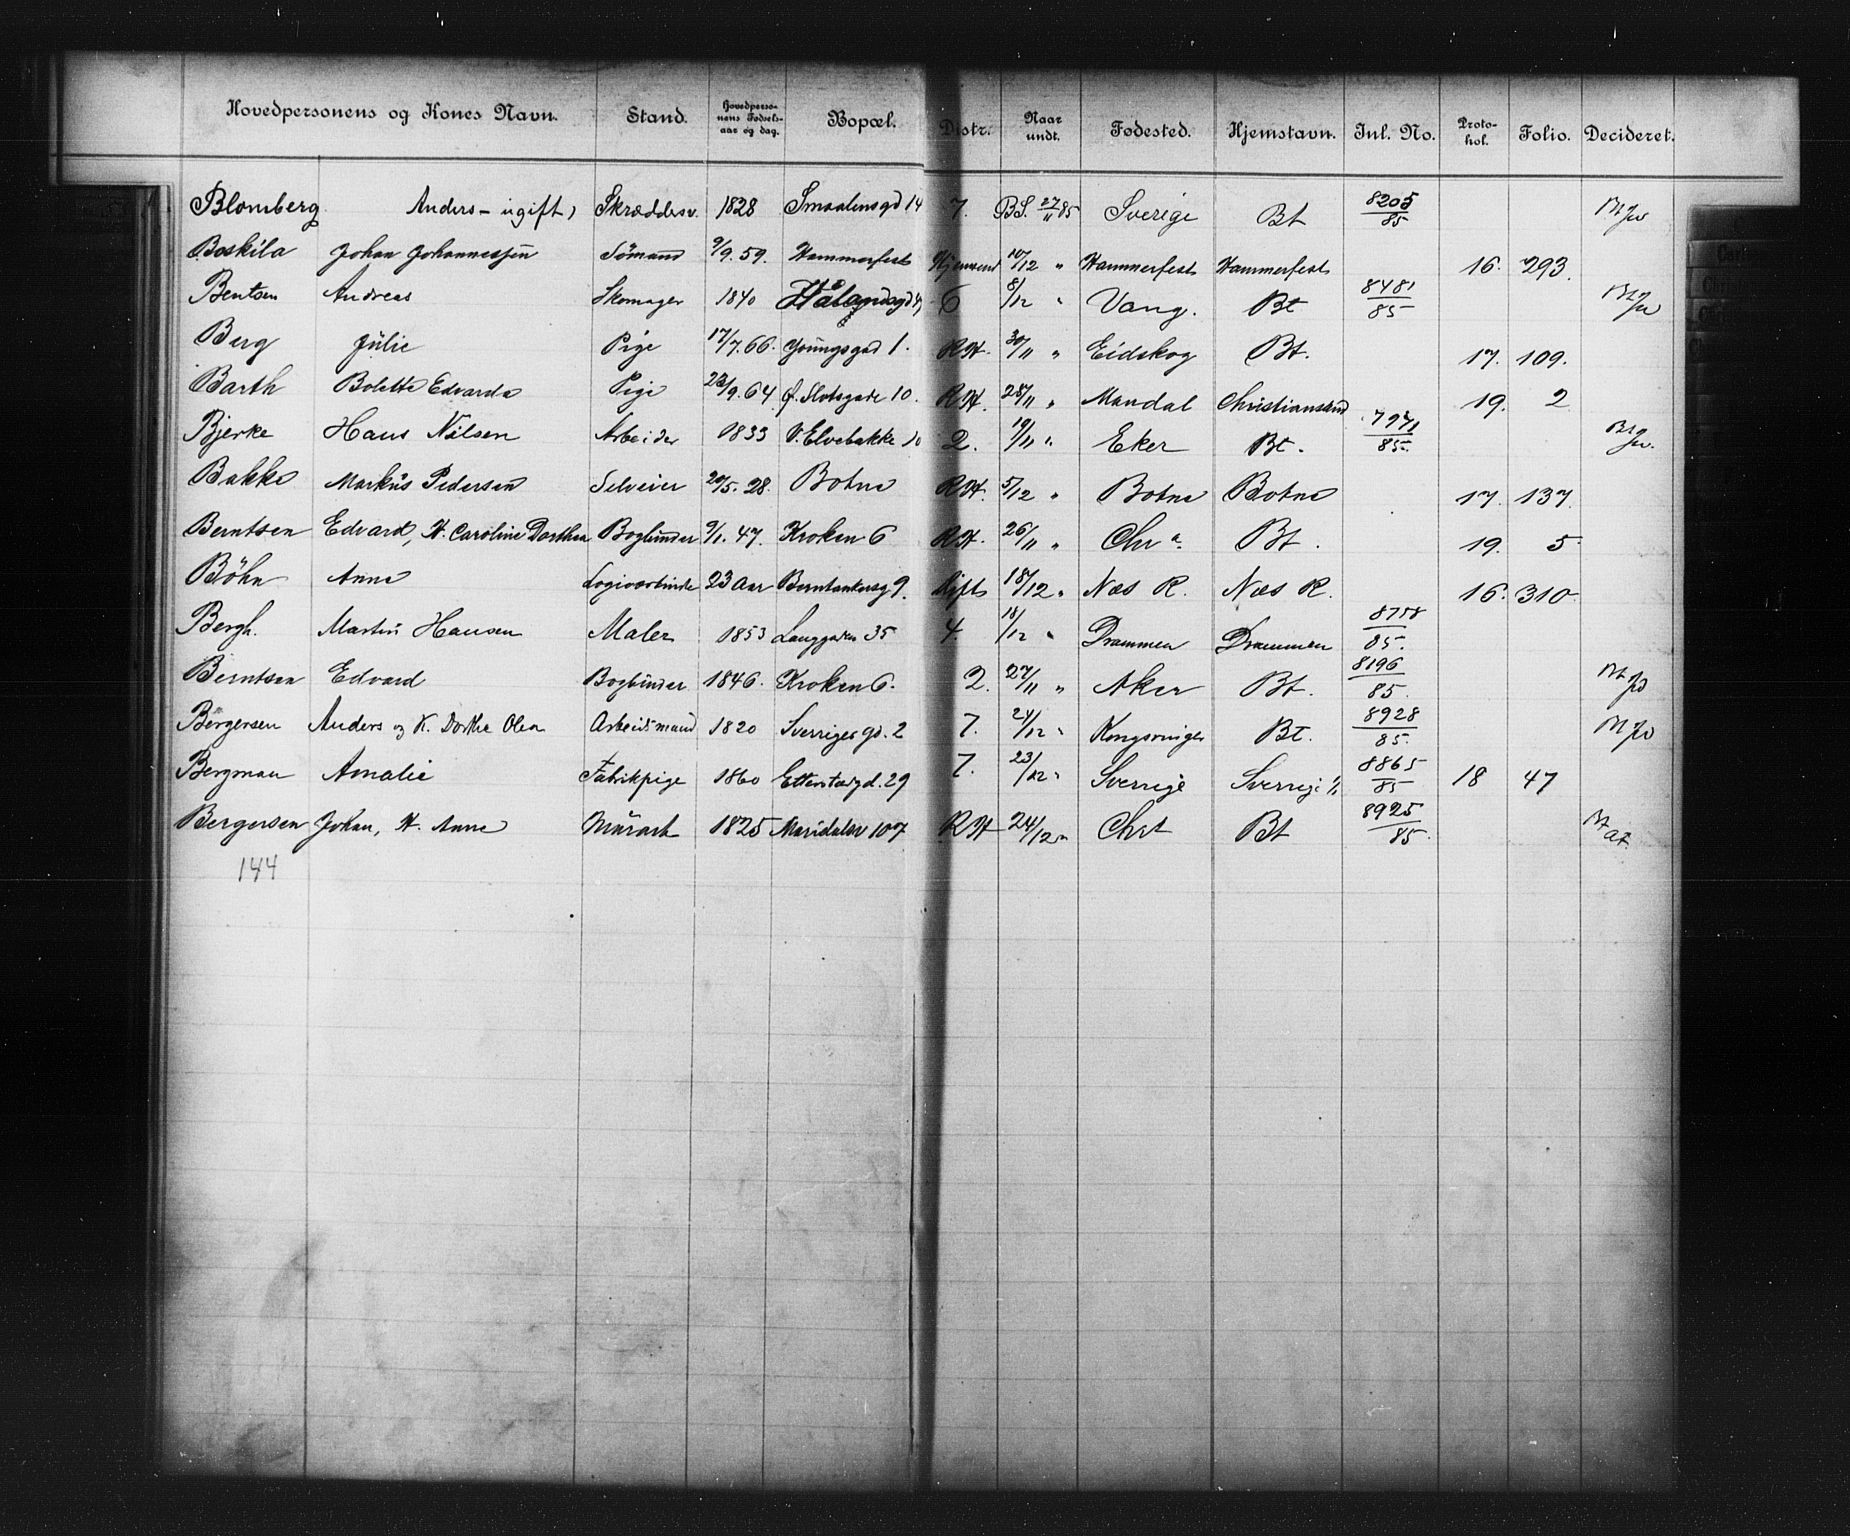 Hovedpersonens og Kones Navn. Stand. Hovedpersonens Fødselsaar og dag. Bopæl. Distr. Naar undt. Fødested. Hjemstavn. Inl. No. Protokol. Folio. Decideret.
Blomberg Anders - ugift, Skræddersv. 1828 Smaalensgd 14 7. BS. 27/11 85 Sverige Bt 8205/85
Boskila Johan Johannessen Sømand 9/9. 59. Hammerfest 10/12 " Hammerfest Hammerfest 16. 293.
Bentsen Andreas Skomager 1840 6 8/12 " Vang. Bt 8481/85
Berg Julie Pige 17/7. 66. Youngsgad 1. RH. 30/11 " Eidskog Bt. 17. 109.
Barth Bolette Edvarda Pige 23/9. 64 Ø. Slotsgade 10. RH. 28/11 " Mandal Christianssund 19. 2
Bjerke Hans Nilsen Arbeider 1833 V. Elvebakke 10 2. 19/11 " Eker Bt. 7971/85.
Bakke Markus Pedersen Selveier 20/5. 28. Botne RH. 5/12 " Botne Botne 17. 137.
Berntsen Edvard, H. Caroline Dorthea Bogbinder 9/1. 47. Kroken 6 RH. 26/11 " Chr a. Bt. 19. 5
Böhn Anne Logiværtinde 23 Aar Berntankersg 9. 18/12 " Næs R. Næs R. 16. 310.
Bergh. Martin Hansen Maler 1853 Langgaden 35 4. 18/12 " Drammen Drammen 8758/85.
Berntsen Edvard Bogbinder 1846. Kroken 6. 2. 27/11 " Aker Bt. 8196/85.
Bergersen Anders og K. Dorthe Olea Arbeidsmand 1820 Sverriges gd. 2 7. 24/12 " Kongsvinger Bt. 8928/85.
Bergman Amalie Fabrikpige 1860 Etterstadgd. 29 7. 23/12 " Sverrige Sverrige 8865/85 18 47
Bergersen Johan, H. Anne Murarb 1825 Maridalsv 107 RH 24/12 " Chra Bt 8925/85.
144